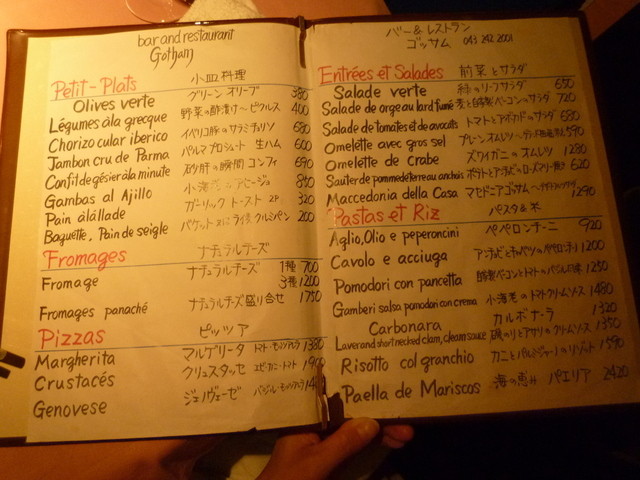 bar and restaurant
Gotham
Petit-Plats 小皿料理
Olives verte グリーンオリーブ 380
Légumes àla grecque 野菜の酢漬け～ピクルス 400
Chorizo cular iberico イベリコ豚のサラミチョリソ 680
Jambon cru de Parma パルマプロシュート 生ハム 600
Confit de gésier àla minute 砂肝の瞬間コンフィ 690
Gambas al Ajillo 850
Pain àlàllade ガーリックトースト 2P 320
Baguette, Pain de seigle 200
Fromages ナチュラルチーズ
Fromage ナチュラルチーズ 1種 700
3種 1200
Fromages panaché ナチュラルチーズ盛り合せ 1750
Pizzas ピッツア
Margherita マルゲリータ トマト・モッツアレラ 1380
Crustacés クリュスタッセ エビ・カニ・トマト
Genovese ジェノヴェーゼ
バー&レストラン
ゴッサム 043 242 2001
Entrées et Salades 前菜とサラダ
Salade verte 緑のリーフサラダ 650
Salade de orgeau lard fumé 麦と自家製ベーコンのサラダ 720
Salade de tomates et de avocats トマトとアボカドのサラダ 680
Omelette avec gros sel プレーンオムレツ 590
Omelette de crabe ズワイガニのオムレツ 1280
Sauter de pomme de terre au anchois 620
Maccedonia della Casa マセドニアゴッサム 1290
Pastas et Riz パスタ&米
Aglio, Olio e peperoncini ペペロンチーニ 920
Cavolo e acciuga アンチョビとキャベツのペペロンチーノ 1200
Pomodori con pancetta 自家製ベーコンとトマトのバジル風味 1250
Gamberi salsa pomodori con crema 小海老のトマトクリームソース 1480
Carbonara カルボナーラ 1320
Laver and short necked clam, cleam sauce 磯のりとアサリのクリームソース 1350
Risotto col granchio カニとパルミジャーノのリゾット 1590
Paella de Mariscos 海の恵み パエリア 2420